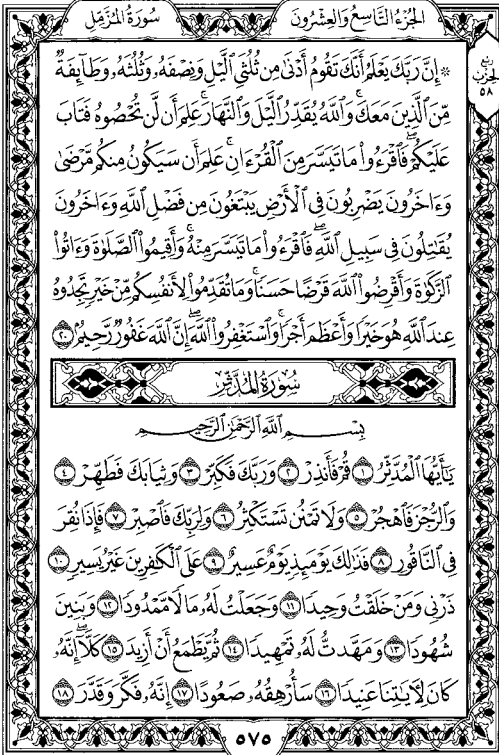 سُورَةُ المُزَّمِّل
الجُزْءُ التَّاسِعُ وَالعِشْرُونَ
ربع
الحزب
٥٨
۞ إِنَّ رَبَّكَ يَعْلَمُ أَنَّكَ تَقُومُ أَدْنَىٰ مِن ثُلُثَيِ ٱلَّيْلِ وَنِصْفَهُۥ وَثُلُثَهُۥ وَطَآئِفَةٌ
مِّنَ ٱلَّذِينَ مَعَكَۚ وَٱللَّهُ يُقَدِّرُ ٱلَّيْلَ وَٱلنَّهَارَۚ عَلِمَ أَن لَّن تُحْصُوهُ فَتَابَ
عَلَيْكُمْۖ فَٱقْرَءُوا۟ مَا تَيَسَّرَ مِنَ ٱلْقُرْءَانِۚ عَلِمَ أَن سَيَكُونُ مِنكُم مَّرْضَىٰ
وَءَاخَرُونَ يَضْرِبُونَ فِى ٱلْأَرْضِ يَبْتَغُونَ مِن فَضْلِ ٱللَّهِ وَءَاخَرُونَ
يُقَٰتِلُونَ فِى سَبِيلِ ٱللَّهِۖ فَٱقْرَءُوا۟ مَا تَيَسَّرَ مِنْهُۚ وَأَقِيمُوا۟ ٱلصَّلَوٰةَ وَءَاتُوا۟
ٱلزَّكَوٰةَ وَأَقْرِضُوا۟ ٱللَّهَ قَرْضًا حَسَنًاۚ وَمَا تُقَدِّمُوا۟ لِأَنفُسِكُم مِّنْ خَيْرٍ تَجِدُوهُ
عِندَ ٱللَّهِ هُوَ خَيْرًا وَأَعْظَمَ أَجْرًاۚ وَٱسْتَغْفِرُوا۟ ٱللَّهَۖ إِنَّ ٱللَّهَ غَفُورٌ رَّحِيمٌۢ ٢٠
سُورَةُ المُدَّثِّر
بِسْمِ ٱللَّهِ ٱلرَّحْمَٰنِ ٱلرَّحِيمِ
يَٰٓأَيُّهَا ٱلْمُدَّثِّرُ ١ قُمْ فَأَنذِرْ ٢ وَرَبَّكَ فَكَبِّرْ ٣ وَثِيَابَكَ فَطَهِّرْ ٤
وَٱلرُّجْزَ فَٱهْجُرْ ٥ وَلَا تَمْنُن تَسْتَكْثِرُ ٦ وَلِرَبِّكَ فَٱصْبِرْ ٧ فَإِذَا نُقِرَ
فِى ٱلنَّاقُورِ ٨ فَذَٰلِكَ يَوْمَئِذٍ يَوْمٌ عَسِيرٌ ٩ عَلَى ٱلْكَٰفِرِينَ غَيْرُ يَسِيرٍ ١٠
ذَرْنِى وَمَنْ خَلَقْتُ وَحِيدًا ١١ وَجَعَلْتُ لَهُۥ مَالًا مَّمْدُودًا ١٢ وَبَنِينَ
شُهُودًا ١٣ وَمَهَّدتُّ لَهُۥ تَمْهِيدًا ١٤ ثُمَّ يَطْمَعُ أَنْ أَزِيدَ ١٥ كَلَّآۖ إِنَّهُۥ
كَانَ لِءَايَٰتِنَا عَنِيدًا ١٦ سَأُرْهِقُهُۥ صَعُودًا ١٧ إِنَّهُۥ فَكَّرَ وَقَدَّرَ ١٨
٥٧٥